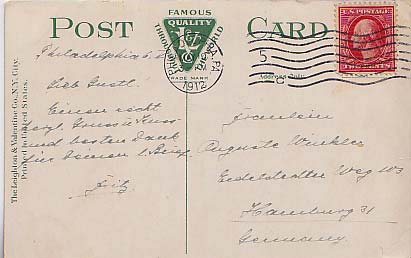 POST CARD
FAMOUS
QUALITY
THROUGHOUT THE WORLD
TRADE MARK
PA
1912
5
U.S. POSTAGE
TWO CENTS
Address Only.
The Leighton & Valentine Co., N.Y. City.
Printed in United States.
Philadelphia
Lieb Gustl.
Einen recht
herzl. Gruss u. Kuss
und besten Dank
für Deinen l. Brief.
Fritz
Fraeulein
Auguste Winkler
Weg 103
Hamburg 31
Germany